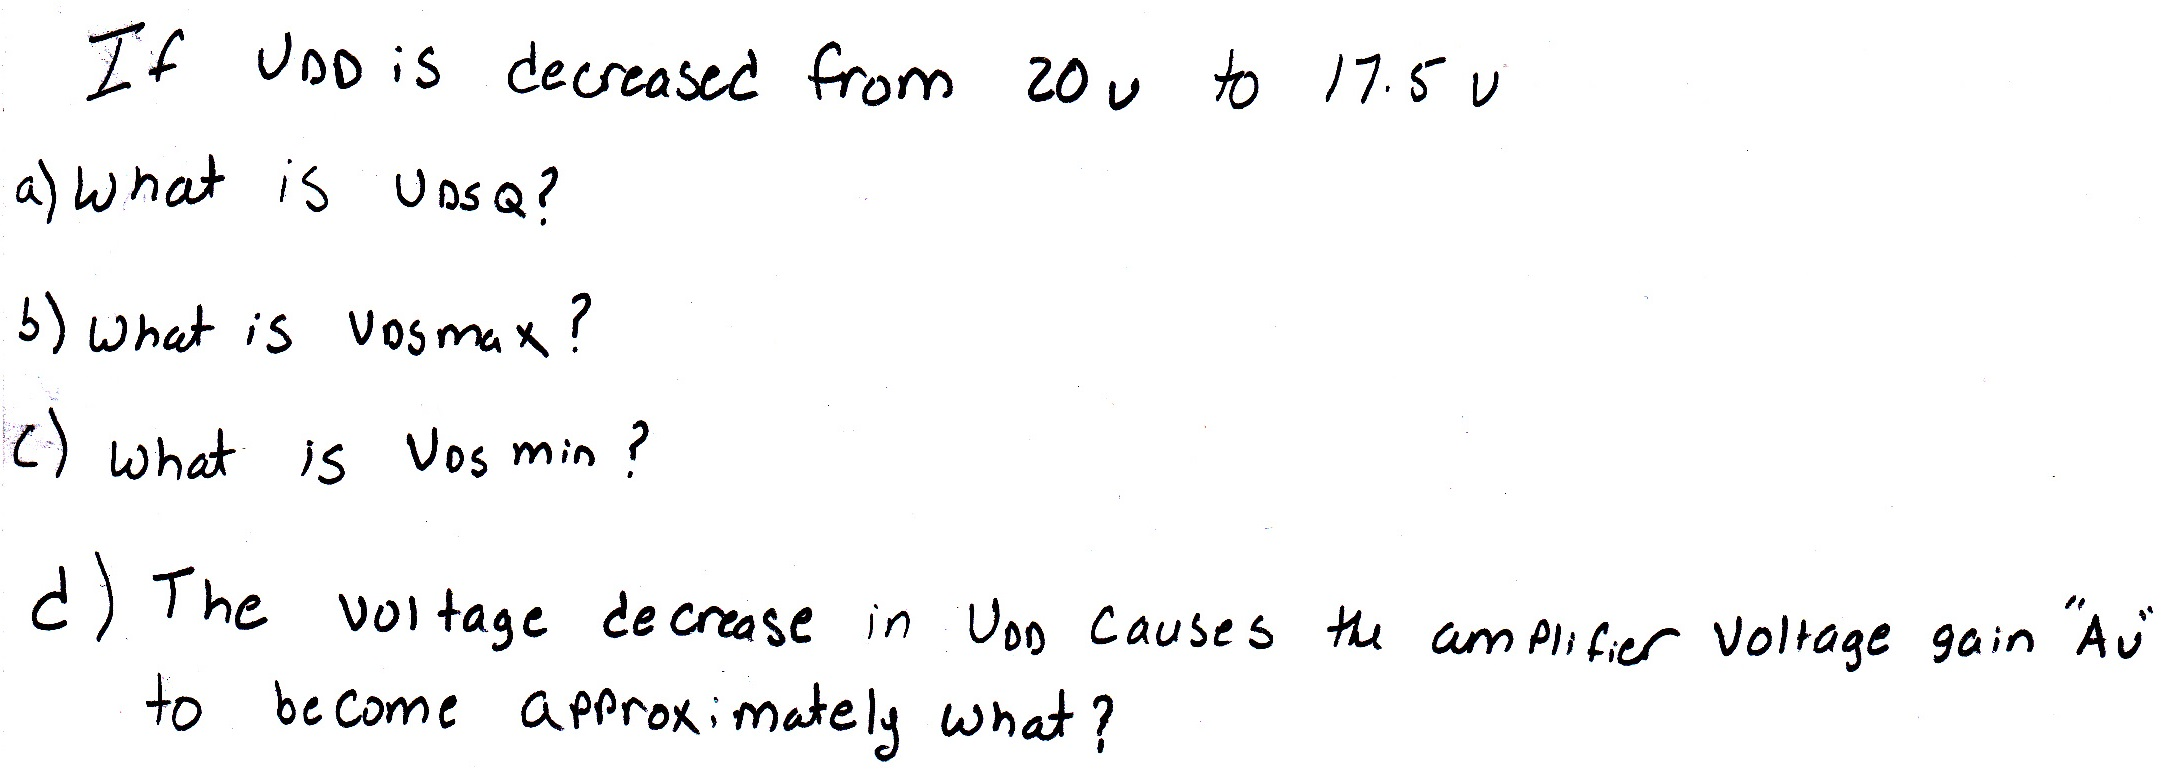 If VDD is decreased from 20v to 17.5v
a) What is VDSQ?
b) What is VDSmax?
c) What is VDS min?
d) The voltage decrease in VDD causes the amplifier voltage gain "Av"
to become approximately what?